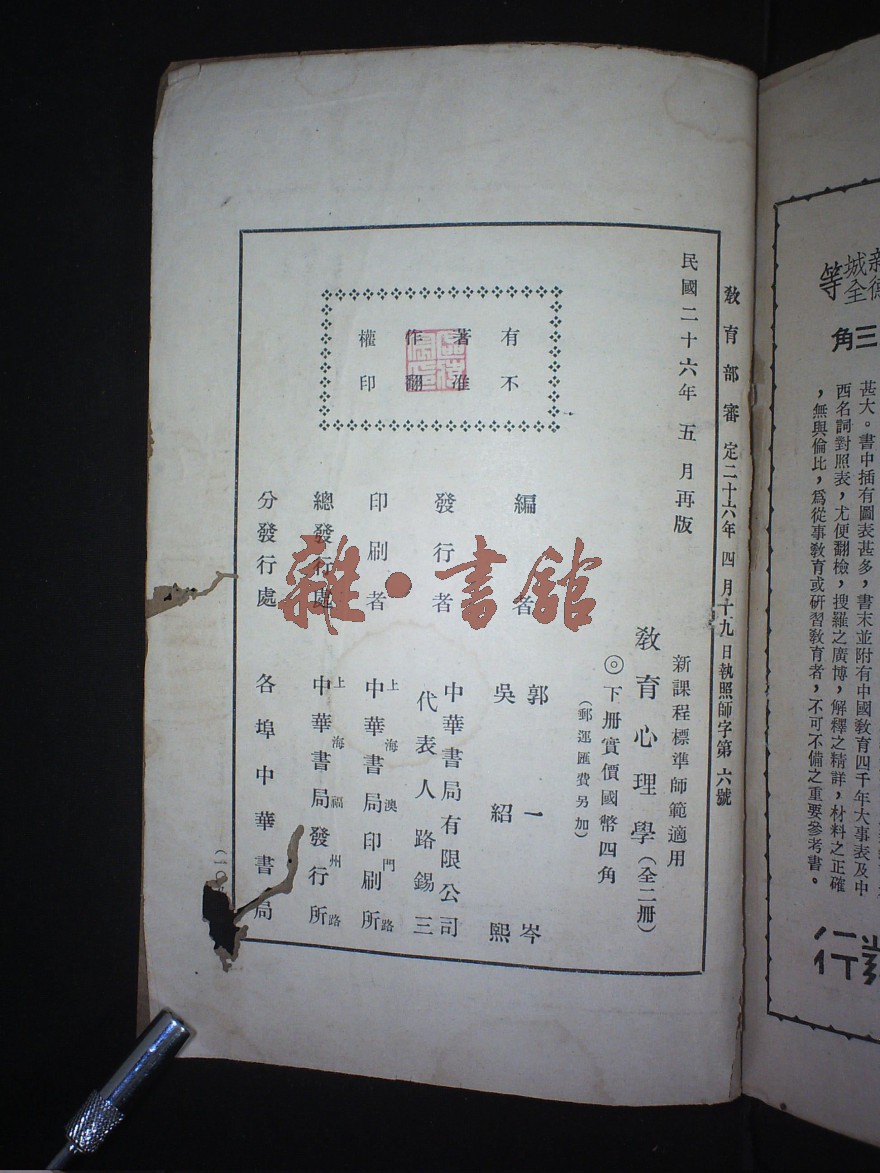 教育部審定二十六年四月十九日執照師字第六號
民國二十六年五月再版
新課程標準師範適用
教育心理學（全二冊）
◎下冊實價國幣四角
（郵運匯費另加）
有著作權
不准翻印
編者
郭一岑
吳紹熙
發行者
中華書局有限公司
代表人路錫三
印刷者
上海澳門路
中華書局印刷所
總發行處
上海福州路
中華書局發行所
分發行處
各埠中華書局
雜·書館
甚大。書中插有圖表甚多，書末並附有中國教育四千年大事表及中
西名詞對照表，尤便翻檢，搜羅之廣博，解釋之精詳，材料之正確
，無與倫比，爲從事教育或研習教育者，不可不備之重要參考書。
城全
等
三角
行